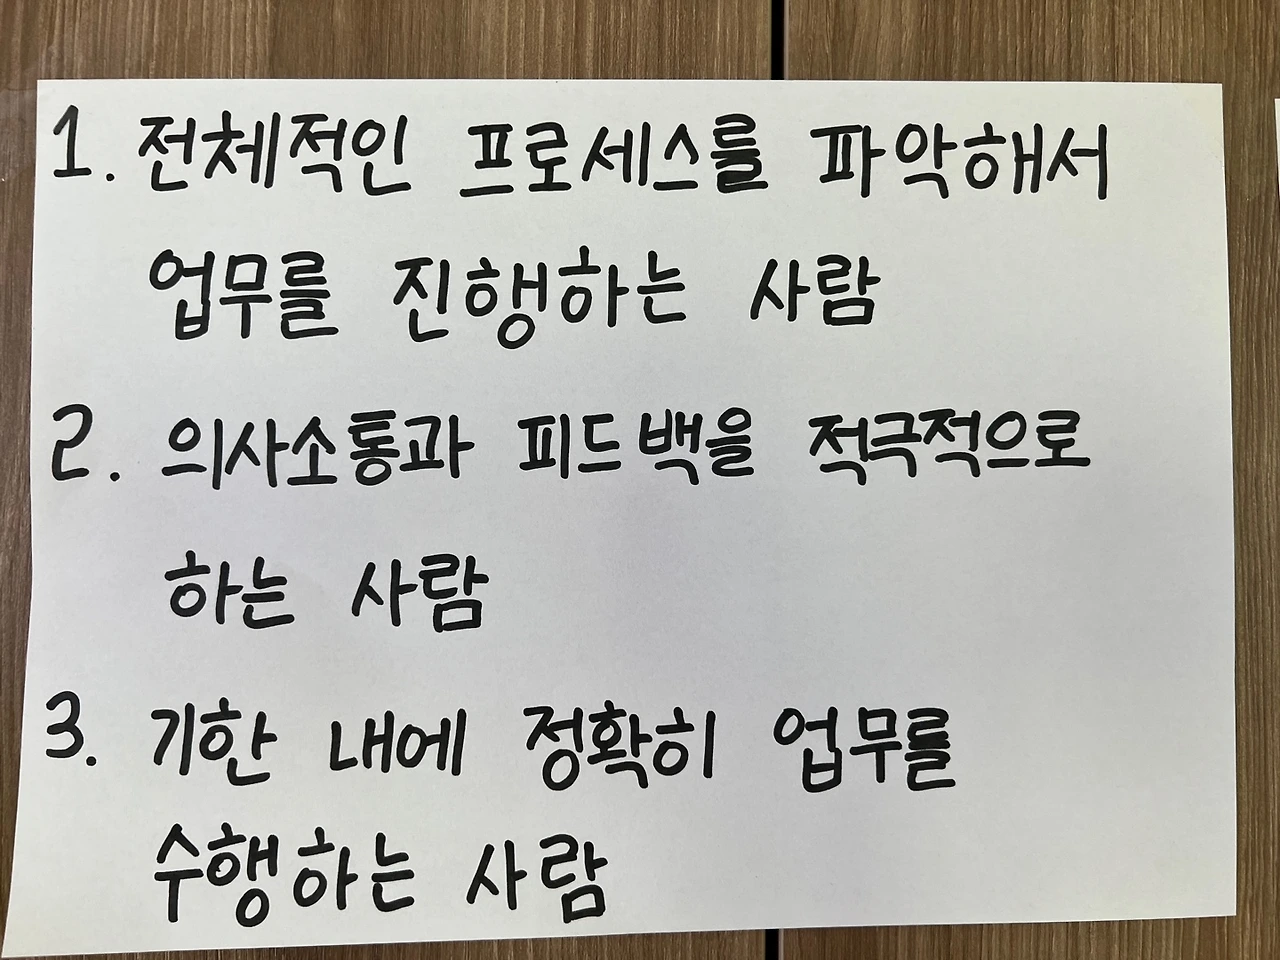 1. 전체적인 프로세스를 파악해서
업무를 진행하는 사람
2. 의사소통과 피드백을 적극적으로
하는 사람
3. 기한 내에 정확히 업무를
수행하는 사람